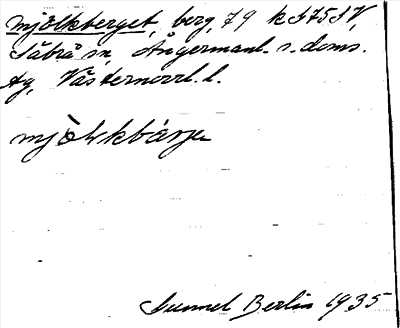 Mjölkberget, berg, 79 k I75IV,
Säbrå sn, Ångermanl. s. doms.
lg, Västernorrl. l.
mjòlkbärje
Gunnel Berlin 1935